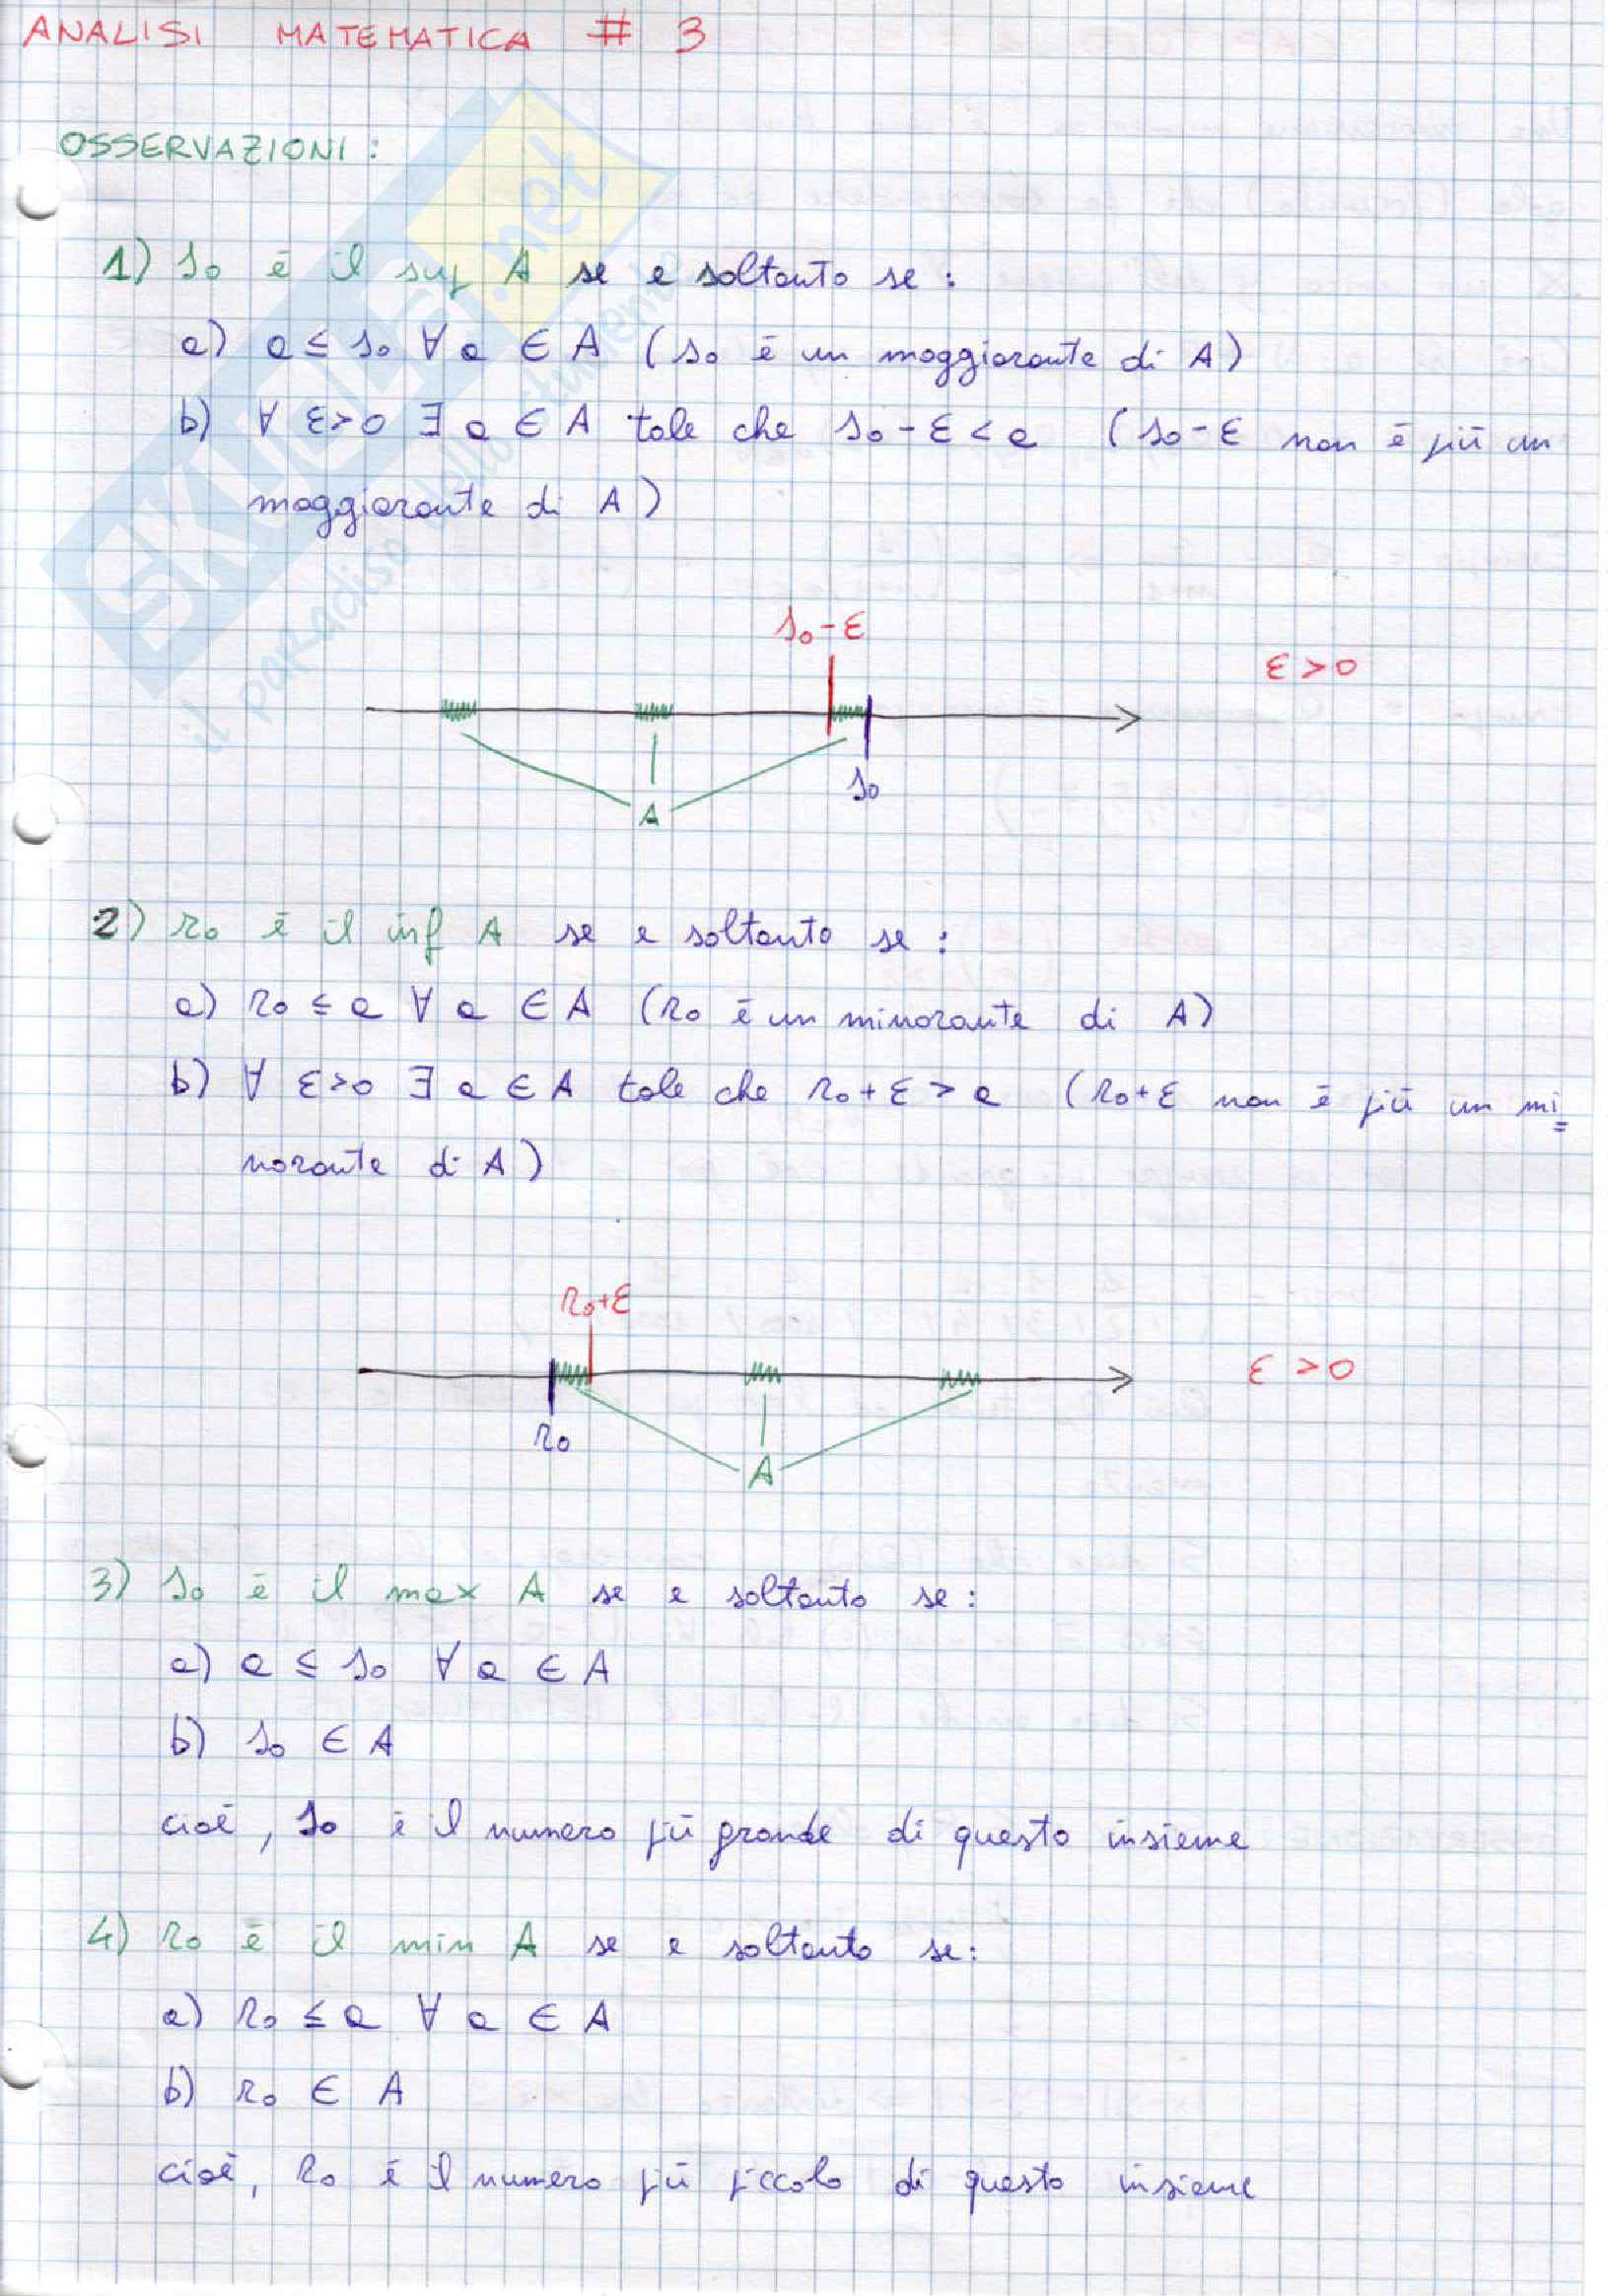 ANALISI MATEMATICA # 3
OSSERVAZIONI:
1) s₀ è il sup A se e soltanto se:
a) a ≤ s₀ ∀ a ∈ A (s₀ è un maggiorante di A)
b) ∀ ε>0 ∃ a ∈ A tale che s₀-ε < a (s₀-ε non è più un
maggiorante di A)
s₀-ε
ε>0
s₀
A
2) r₀ è il inf A se e soltanto se:
a) r₀ ≤ a ∀ a ∈ A (r₀ è un minorante di A)
b) ∀ ε>0 ∃ a ∈ A tale che r₀+ε > a (r₀+ε non è più un mi=
norante di A)
r₀+ε
ε>0
r₀
A
3) s₀ è il max A se e soltanto se:
a) a ≤ s₀ ∀ a ∈ A
b) s₀ ∈ A
cioè, s₀ è il numero più grande di questo insieme
4) r₀ è il min A se e soltanto se:
a) r₀ ≤ a ∀ a ∈ A
b) r₀ ∈ A
cioè, r₀ è il numero più piccolo di questo insieme
SKUOLA.net
il paradiso dello studente